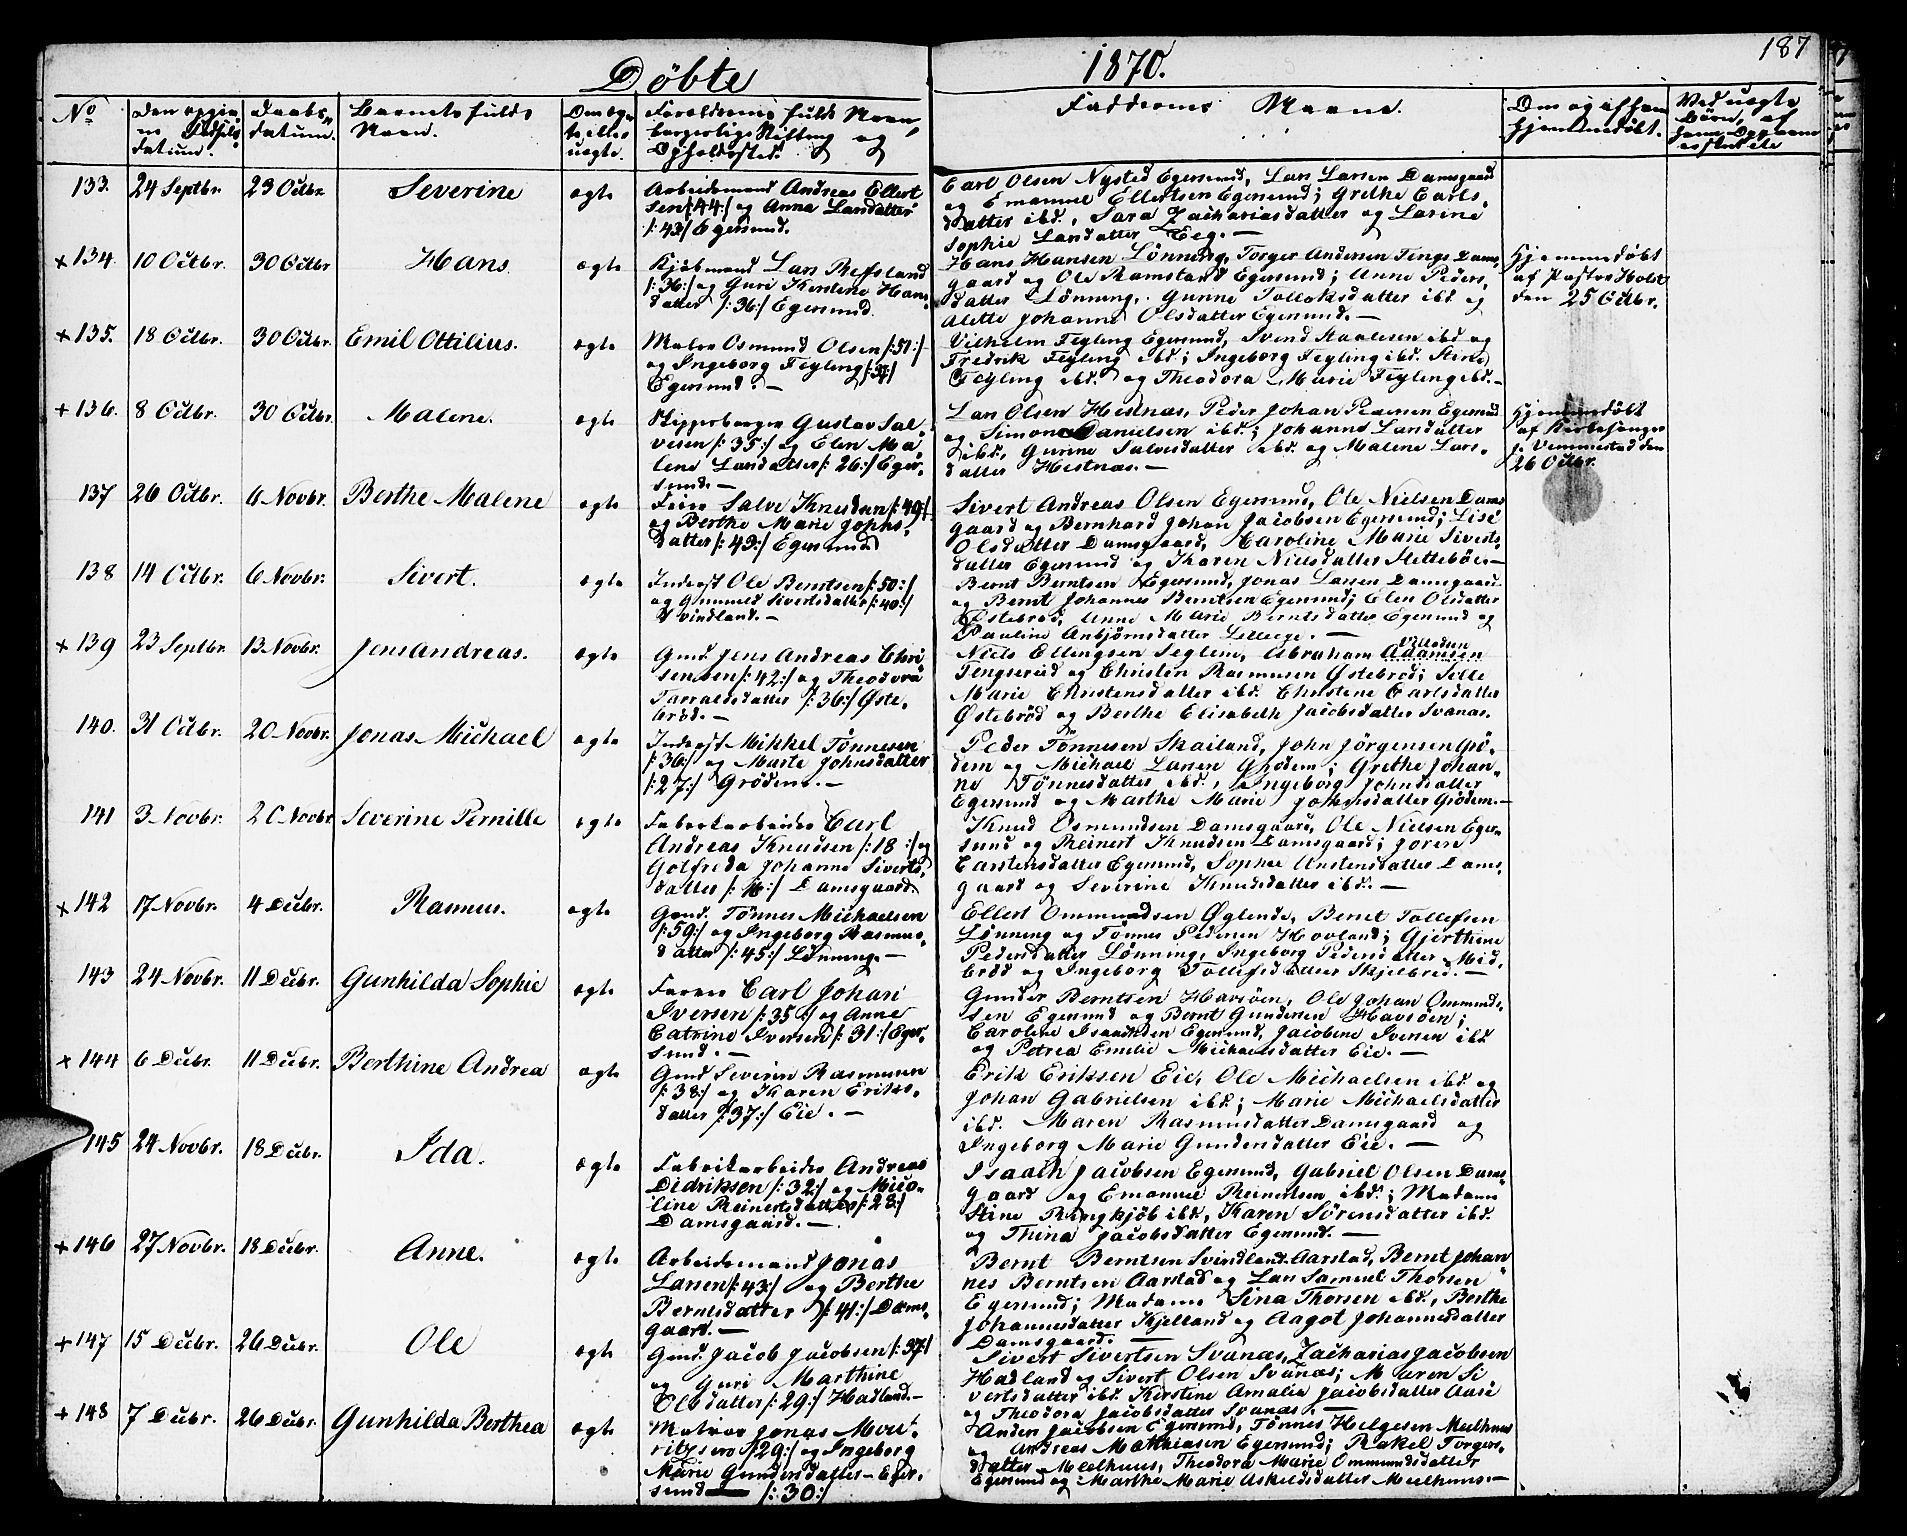 187
Döbte 1870.
No
Daabs-
datum.
Barnets fulde
Navn.
Forældrenes fulde Navn,
borgerlige Stilling og
Opholdssted.
Faddernes Navne.
Om og af hvem
hjemmedöbt.
133. 24 Septbr. 23 Octbr. Severine ægte
Arbeidsmand Andreas Ellert
sen /:44:/ og Anna Larsdatter
/:43/ Egersund.
Carl Olsen Nysted Egersund, Lars Larsen Damsgaard
og Emanuel Ellertsen Egersund; Grethe Carls-
datter ibd., Sara Zachariasdatter og Larine
Sophie Larsdatter Eeg. —
+ 134. 10 Octbr. 30 Octbr Hans ægte
Kjøbmand Lars Reffsland
/:36:/ og Guri Kirstine Han-
datter /:36:/ Egersund.
Hans Hansen Lönning, Torger Andersen Tengs Dams-
gaard og Ole Ramsland Egersund; Anne Peders-
datter Lönning, Gunne Tolloksdatter ibd og
Alette Johanne Olsdatter Egersund. —
Hjemmedöbt
af Pastor Holst
den 25 Octbr.
+ 135. 18 Octbr. 30 Octbr. Emil Ottilius. ægte
Maler Osmund Olsen /:51:/
og Ingeborg Feyling /:37/
Egersund. —
Vilhelm Feyling Egersund, Svend Staalesen ibd og
Fredrik Feyling ibd; Ingeborg Feyling ibd. Stine
Feyling ibd. og Theodora Marie Feyling ibd. —
+ 136. 8 Octbr. 30 Octbr. Malene. ægte
Skipperborger Gustav Sal-
vesen /:35:/ og Elen Ma-
lene Larsdatter /:26:/ Eger-
sund. —
Lars Olsen Hestnæs, Peder Johan Pedersen Egersund
og Simon Danielsen ibd.; Johanne Larsdatter
ibd., Gurine Salvesdatter ibd. og Malene Lars-
datter Hestnæs. —
Hjemmedöbt
af Kirkesanger
J. Vemmestad den
26 Octbr.
137 26 Octbr. 6 Novbr. Berthe Malene ægte
Feier Salve Knudsen /:49:/
og Berthe Marie Johns-
datter /:43:/ Egersund
Sivert Andreas Olsen Egersund, Ole Nielsen Dams-
gaard og Bernhard Johan Jacobsen Egersund; Lise
Olsdatter Damsgaard, Caroline Marie Siverts-
datter Egersund og Karen Nielsdatter Slettebøe. —
138 14 Octbr. 6 Novbr. Sivert. ægte
Inderst Ole Berntsen /:50:/
og Gunnild Sivertsdatter /:40:/
Svindland. —
Bernt Berntsen Egersund, Jonas Larsen Damsgaard
og Bernt Johannes Berntsen Egersund; Elen Olsdatter
Østebrød, Anne Marie Berntsdatter Egersund og
Pauline Anbjørnsdatter Lilleege. —
+ 139 23 Septbr. 13 Novbr. Jens Andreas. ægte
Gmd. Jens Andreas Chri-
stensen /:42:/ og Theodora
Tarraldsdatter /:36:/ Øste-
brød. —
Niels Ellingsen Seglem, Abraham Adamsen
Tengsereid og Christen Rasmusen Østebrød; Sille
Marie Christensdatter ibd. Christine Carlsdatter
Østebrød og Berthe Elisabeth Jacobsdatter Svanæs.
140. 31 Octbr. 20 Novbr. Jonas Michael ægte
Inderst Mikkel Tönnesen
/:36:/ og Marte Johnsdatter
/:27:/ Grödem. —
Peder Tönnesen Skailand, John Jörgensen Grö-
dem og Michael Larsen Grödem; Grethe Johan-
ne Tönnesdatter ibd., Ingeborg Johnsdatter
Egersund og Marthe Marie Johnsdatter Grödem. —
141 3 Novbr. 20 Novbr Severine Pernille ægte
Fabrikarbeider Carl
Andreas Knudsen /:18:/ og
Gotfreda Johanne Siverts-
datter /:16:/ Damsgaard.
Knud Osmundsen Damsgaard, Ole Nielsen Eger-
sund og Reinert Knudsen Damsgaard; Joren
Carstensdatter Egersund, Sophie Anstensdatter Dams-
gaard og Severine Knudsdatter ibd. —
+ 142 17 Novbr. 4 Decbr. Rasmus. ægte
Gmd. Tönnes Michaelsen
/:59:/ og Ingeborg Rasmus-
datter /:45:/ Lönning. —
Ellert Ommundsen Øglende, Bernt Tollefsen
Lönning og Tönnes Pedersen Hovland; Gjerthine
Pedersdatter Lönning, Ingeborg Pedersdatter Mid-
brød og Ingeborg Tollefsdatter Skjelbred. —
143 24 Novbr. 11 Decbr. Gunhilda Sophie ægte
Farver Carl Johan
Iversen /:35:/ og Anne
Catrine Iversen /:31:/ Eger-
sund. —
Gunder Berntsen Havsöen, Ole Johan Ommund-
sen Egersund og Bernt Gundersen Havsöen;
Caroline Isaachsen Egersund, Jacobine Iversen ibd
og Petrea Emelie Michaelsdatter Eie. —
+ 144 6 Decbr. 11 Decbr. Berthine Andrea ægte
Gmd Severin Rasmusen
/:38:/ og Karen Eriks-
datter /:37:/ Eie. —
Erik Eriksen Eie, Ole Michaelsen ibd og
Johan Gabrielsen ibd; Marie Michaelsdatter
ibd. Maren Rasmusdatter Damsgaard og
Ingeborg Marie Gundersdatter Eie. —
145 24 Novbr. 18 Decbr. Ida. ægte
Fabrikarbeider Andreas
Didriksen /:32:/ og Nico-
line Reinertsdatter /:28:/
Damsgaard. —
Isaach Jacobsen Egersund, Gabriel Olsen Dams-
gaard og Emanuel Reinertsen ibd.; Madame
Stine Ringkjöb ibd., Karen Sörensdatter ibd.
og Thina Jacobsdatter Egersund. —
+ 146 27 Novbr. 18 Decbr. Anne. ægte
Arbeidsmand Jonas
Larsen /:43:/ og Berthe
Berntsdatter /:41:/ Dams-
gaard. —
Bernt Berntsen Svindland Aarstad, Bernt Johan-
nes Berntsen Aarstad og Lars Samuel Thorsen
Egersund; Madame Sina Thorsen ibd., Berthe
Johannesdatter Kjelland og Aagot Johannesdatter
Damsgaard. —
+ 147 15 Decbr. 26 Decbr. Ole ægte
Gmd. Jacob Jacobsen /:37:/
og Guri Marthine
Olsdatter /:29:/ Hadland. —
Sivert Sivertsen Svanæs, Zacharias Jacobsen
Hadland og Sivert Olsen Svanæs; Maren Si-
vertsdatter ibd. Kirstine Amalia Jacobsdatter Aase
og Theodora Jacobsdatter Svanæs. —
+ 148 7 Decbr. 26 Decbr. Gunhilda Berthea ægte
Matros Jonas Mou-
ritzsen /:29:/ og Ingeborg
Marie Gundersdatter — Eger-
sund — /:30:/
Anders Jacobsen Egersund, Tönnes Helgesen Meelhuus
og Andreas Matthiasen Egersund; Rakel Torgers-
datter Meelhuus, Theodora Marie Ommundsdatter
Egersund og Marthe Marie Askeldsdatter Meelhuus. —